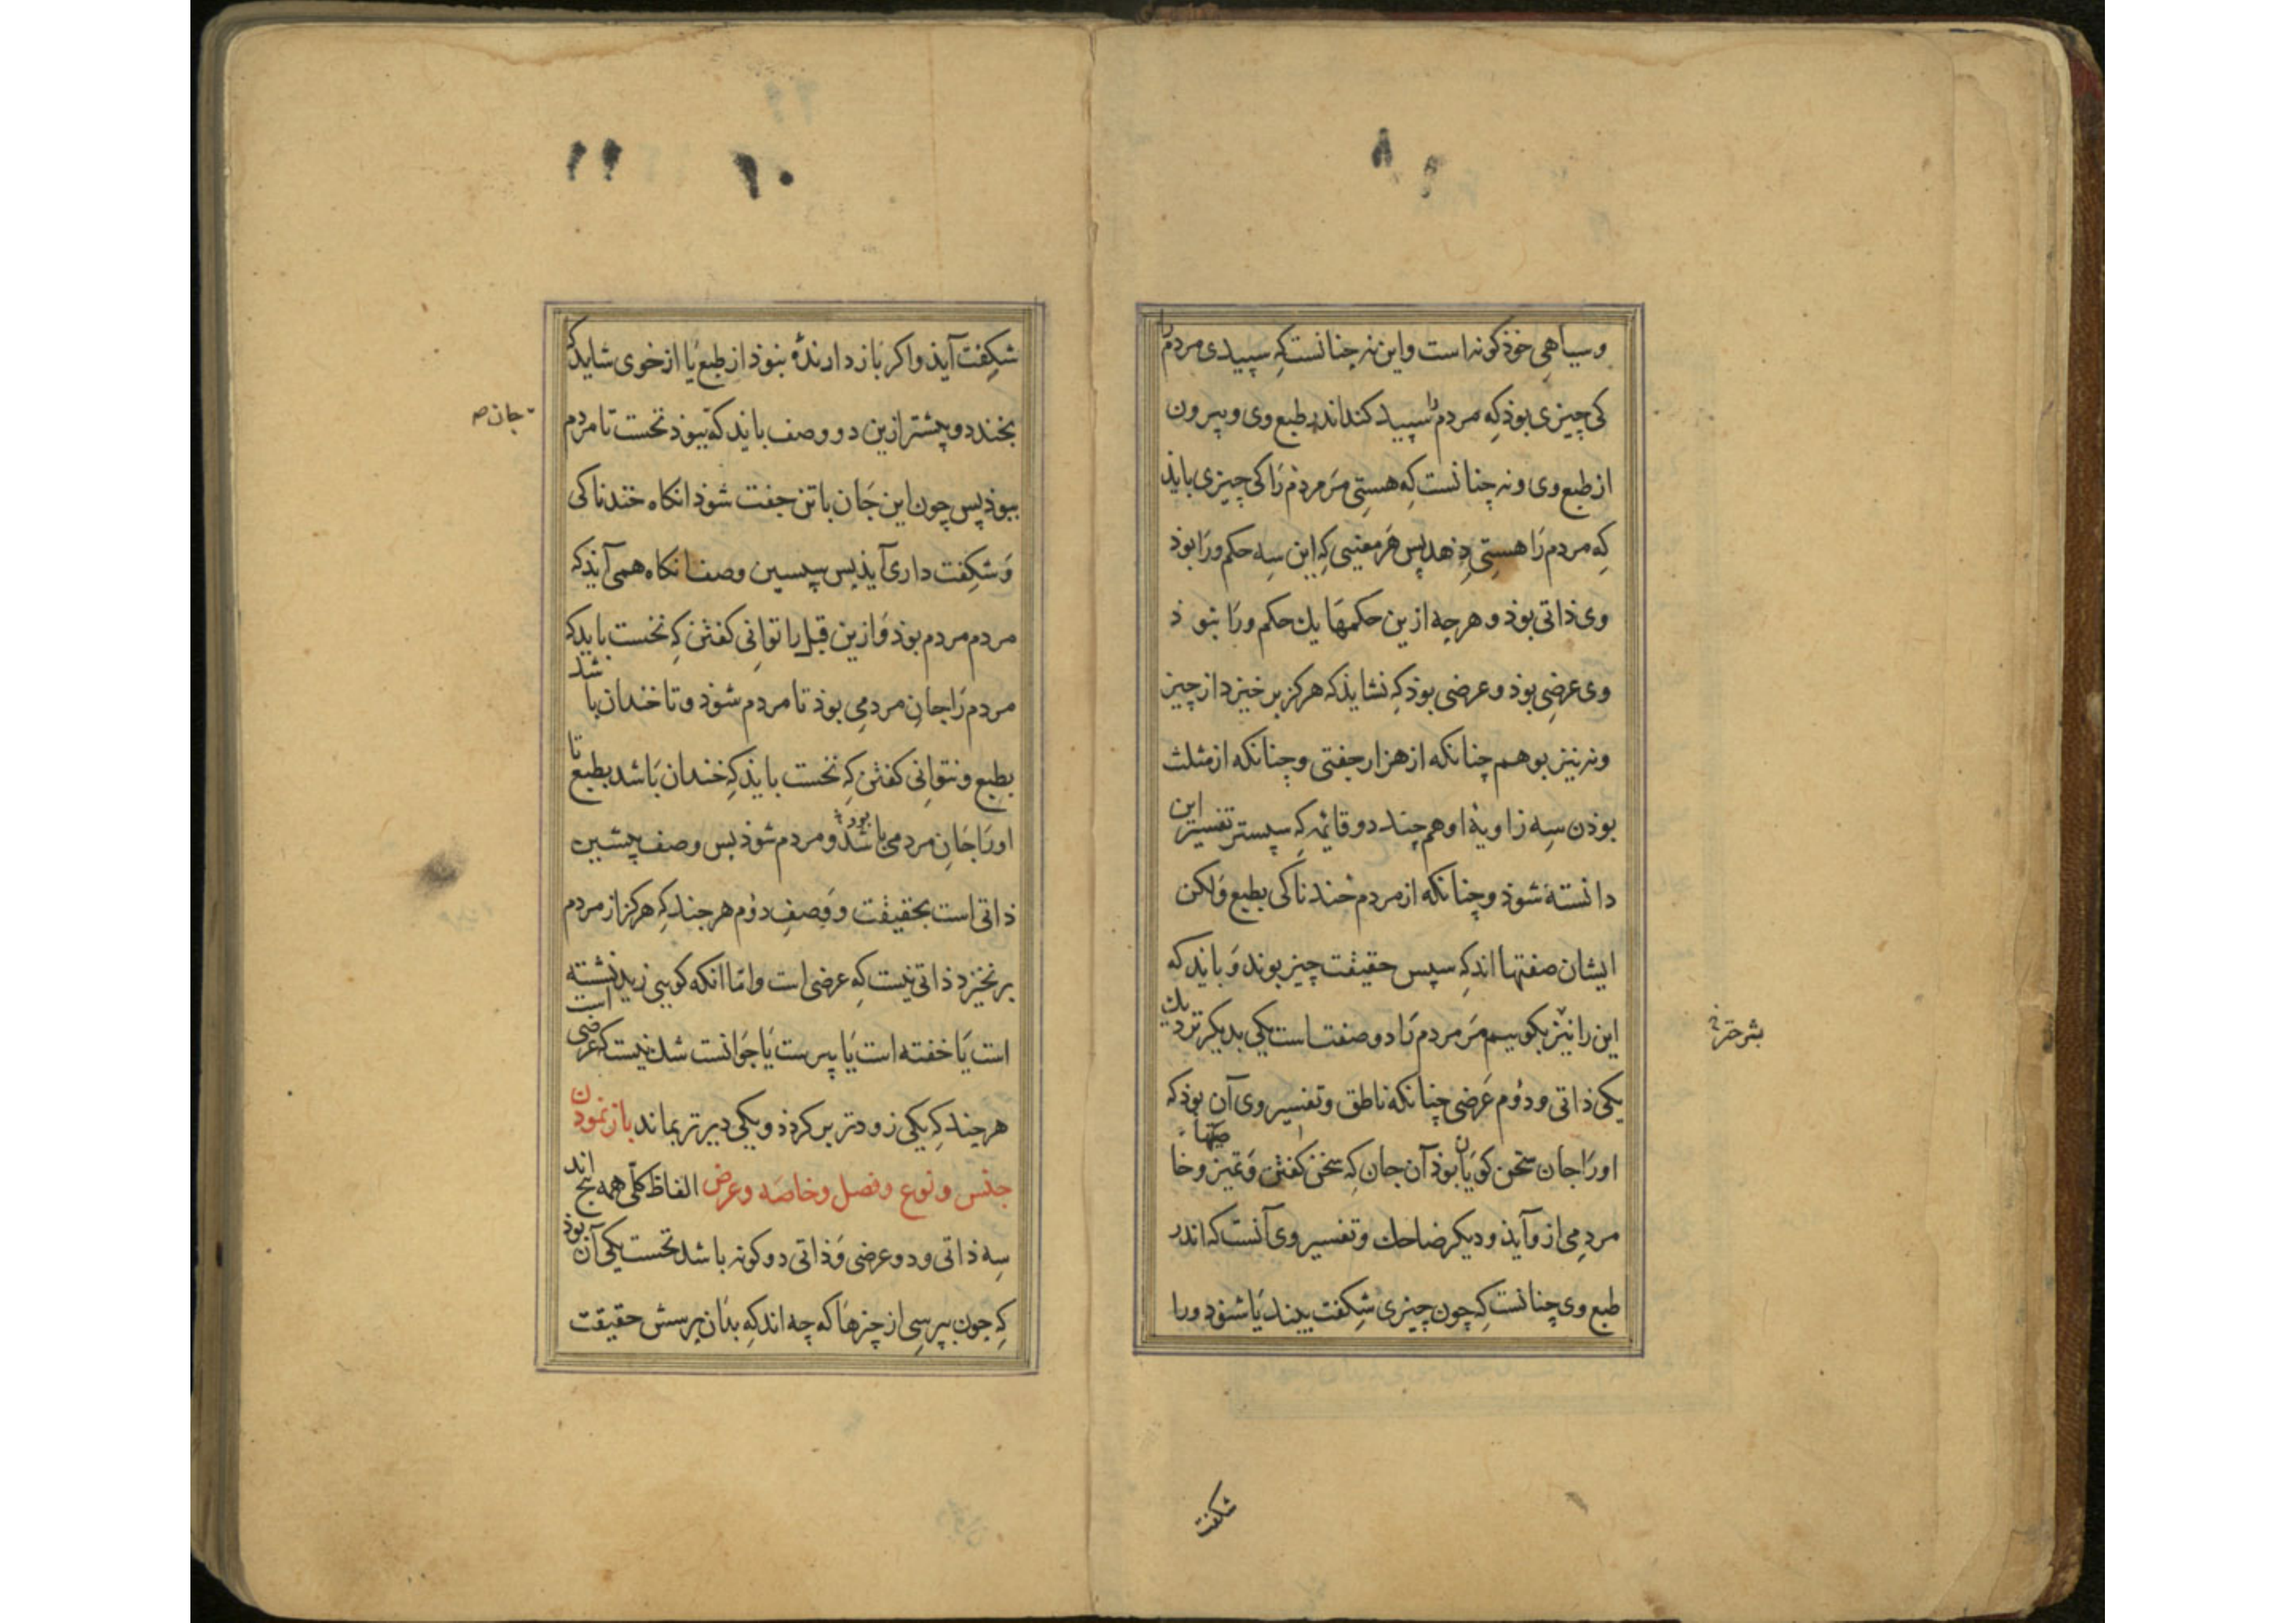 ۸
و سیاهی خوذ کونه است و این نه جنانست که سپیدی مردم را
کی چیزی بوذ که مردم را سپید کند اندر طبع وی و بیرون
از طبع وی و نه چنانست که هستی مر مردم را کی چیزی بایذ
که مردم را هستی دهد پس هر معنیی که این سه حکم ورا بوذ
وی ذاتی بوذ و هرچه ازین حکمها یك حکم ورا نبوذ
وی عرضی بوذ و عرضی بوذ که نشایذ که هرکز برخیزد از چیز
و نه نیز بوهم چنانکه از هزار جفتی و چنانکه از مثلث
بوذن سه زاویهٔ او هم چند دو قائمه که سپستر تفسیر این
دانسته شوذ و چنانکه از مردم خندناکی بطبع ولکن
ایشان صفتها اند که سپس حقیقت چیز بوند و بایذ که
این را نیز بکوییم مر مردم را دو صفت است یکی بدیکر نزدیك
یکی ذاتی و دوم عرضی چنانکه ناطق و تفسیر وی آن بوذ که
اورا جان سخن کویان بوذ آن جان که سخن کفتن و تمیز و خاصیتها
مردمی ازو آیذ و دیکر ضاحك و تفسیر وی آنست که اندر
طبع وی چنانست که چون چیزی شکفت بیند یا شنوذ ورا
شکفت
۱۰
۱۱
شکفت آیذ و اکر باز دارندهٔ نبوذ از طبع یا از خوی شاید که
بخندد و پیشتر ازین دو وصف بایذ که ببوذ نخست تا مردم
جان صح
ببوذ پس چون این جان با تن جفت شوذ انکاه خندناکی
و شکفت داری آیذ پس سپسین وصف انکاه همی آیذ که
مردم مردم بوذ و ازین قبل را توانی کفتن که نخست باید که
مردم را جان مردمی بوذ تا مردم شوذ و تا خندان باشد
بطبع و نتوانی کفتن که نخست بایذ که خندان باشد بطبع تا
اورا جان مردمی باشد بود و مردم شوذ پس وصف پیشین
ذاتی است بحقیقت و وصف دوم هر جند که هرکز از مردم
برنخیزد ذاتی نیست که عرضی است و اما انکه کویی زید نشسته است
است یا خفته است یا پیرست یا جوانست شك نیست که عرضی
هرچند که یکی زودتر برکردذ و یکی دیرتر بماند باز نمودن
جنس و نوع و فصل و خاصه و عرض الفاظ کلی همه پنج اند
سه ذاتی و دو عرضی و ذاتی دو کونه باشد نخست یکی آن بوذ
که جون بپرسی از چیزها که چه اند که بدان پرسش حقیقت